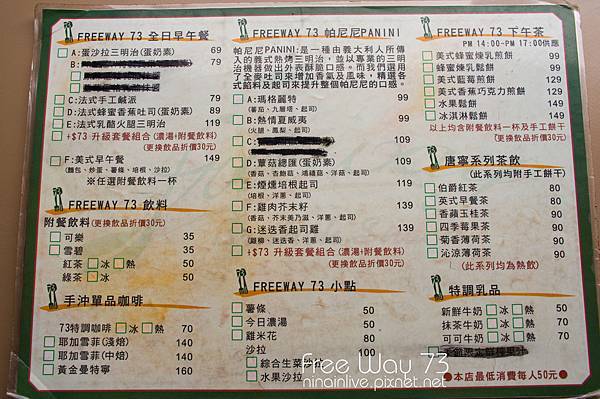 FREEWAY 73 全日早午餐
A:蛋沙拉三明治(蛋奶素) 69
B: 79
C:法式手工鹹派 79
D:法式蜂蜜香蕉吐司(蛋奶素) 89
E:法式乳酪火腿三明治 119
+$73 升級套餐組合(濃湯+附餐飲料)
(更換飲品折價30元)
F:美式早午餐 149
(麵包、炒蛋、薯條、培根、沙拉)
※任選附餐飲料一杯
FREEWAY 73 飲料
附餐飲料(更換飲品折價30元)
可樂 35
雪碧 35
紅茶 冰 熱 50
綠茶 冰 50
手沖單品咖啡
73特調咖啡 冰 熱 70
耶加雪菲(淺焙) 140
耶加雪菲(中焙) 140
黃金曼特寧 160
FREEWAY 73 帕尼尼PANINI
帕尼尼PANINI:是一種由義大利人所傳
入的義式熱烤三明治,並以專業的三明
治機器做出外表酥脆口感。而我們選用
了全麥吐司來增加香氣及風味,精選各
式餡料及起司來提升整個帕尼尼的口感。
A:瑪格麗特 99
(番茄、九層塔、起司)
B:熱情夏威夷 99
(火腿、鳳梨、起司)
C: 99
D:蕈菇總匯(蛋奶素) 109
(香菇、杏鮑菇、鴻禧菇、洋菇、起司)
E:煙燻培根起司 119
(培根、洋蔥、起司)
F:雞肉芥末籽 139
(香菇、芥末美乃滋、洋蔥、起司)
G:迷迭香起司雞 139
(雞柳、迷迭香、洋蔥、起司)
+$73 升級套餐組合(濃湯+附餐飲料)
(更換飲品折價30元)
FREEWAY 73 小點
薯條 50
今日濃湯 50
雞米花 80
沙拉 100
綜合生菜沙拉
水果沙拉
FREEWAY 73 下午茶
PM 14:00~PM 17:00供應
美式蜂蜜煉乳煎餅 99
蜂蜜煉乳鬆餅 99
美式藍莓煎餅 129
美式香蕉巧克力煎餅 129
水果鬆餅 149
冰淇淋鬆餅 149
以上均含附餐飲料一杯及手工餅干
(更換飲品折價30元)
唐寧系列茶飲
(此系列均附手工餅干)
伯爵紅茶 80
英式早餐茶 80
香蘋玉桂茶 90
四季莓果茶 90
菊香薄荷茶 90
沁涼薄荷茶 90
(此系列均為熱飲)
特調乳品
新鮮牛奶 冰 熱 50
抹茶牛奶 冰 熱 70
可可牛奶 冰 熱 70
●本店最低消費每人50元●
Free Way 73
ninainlive.pixnet.net